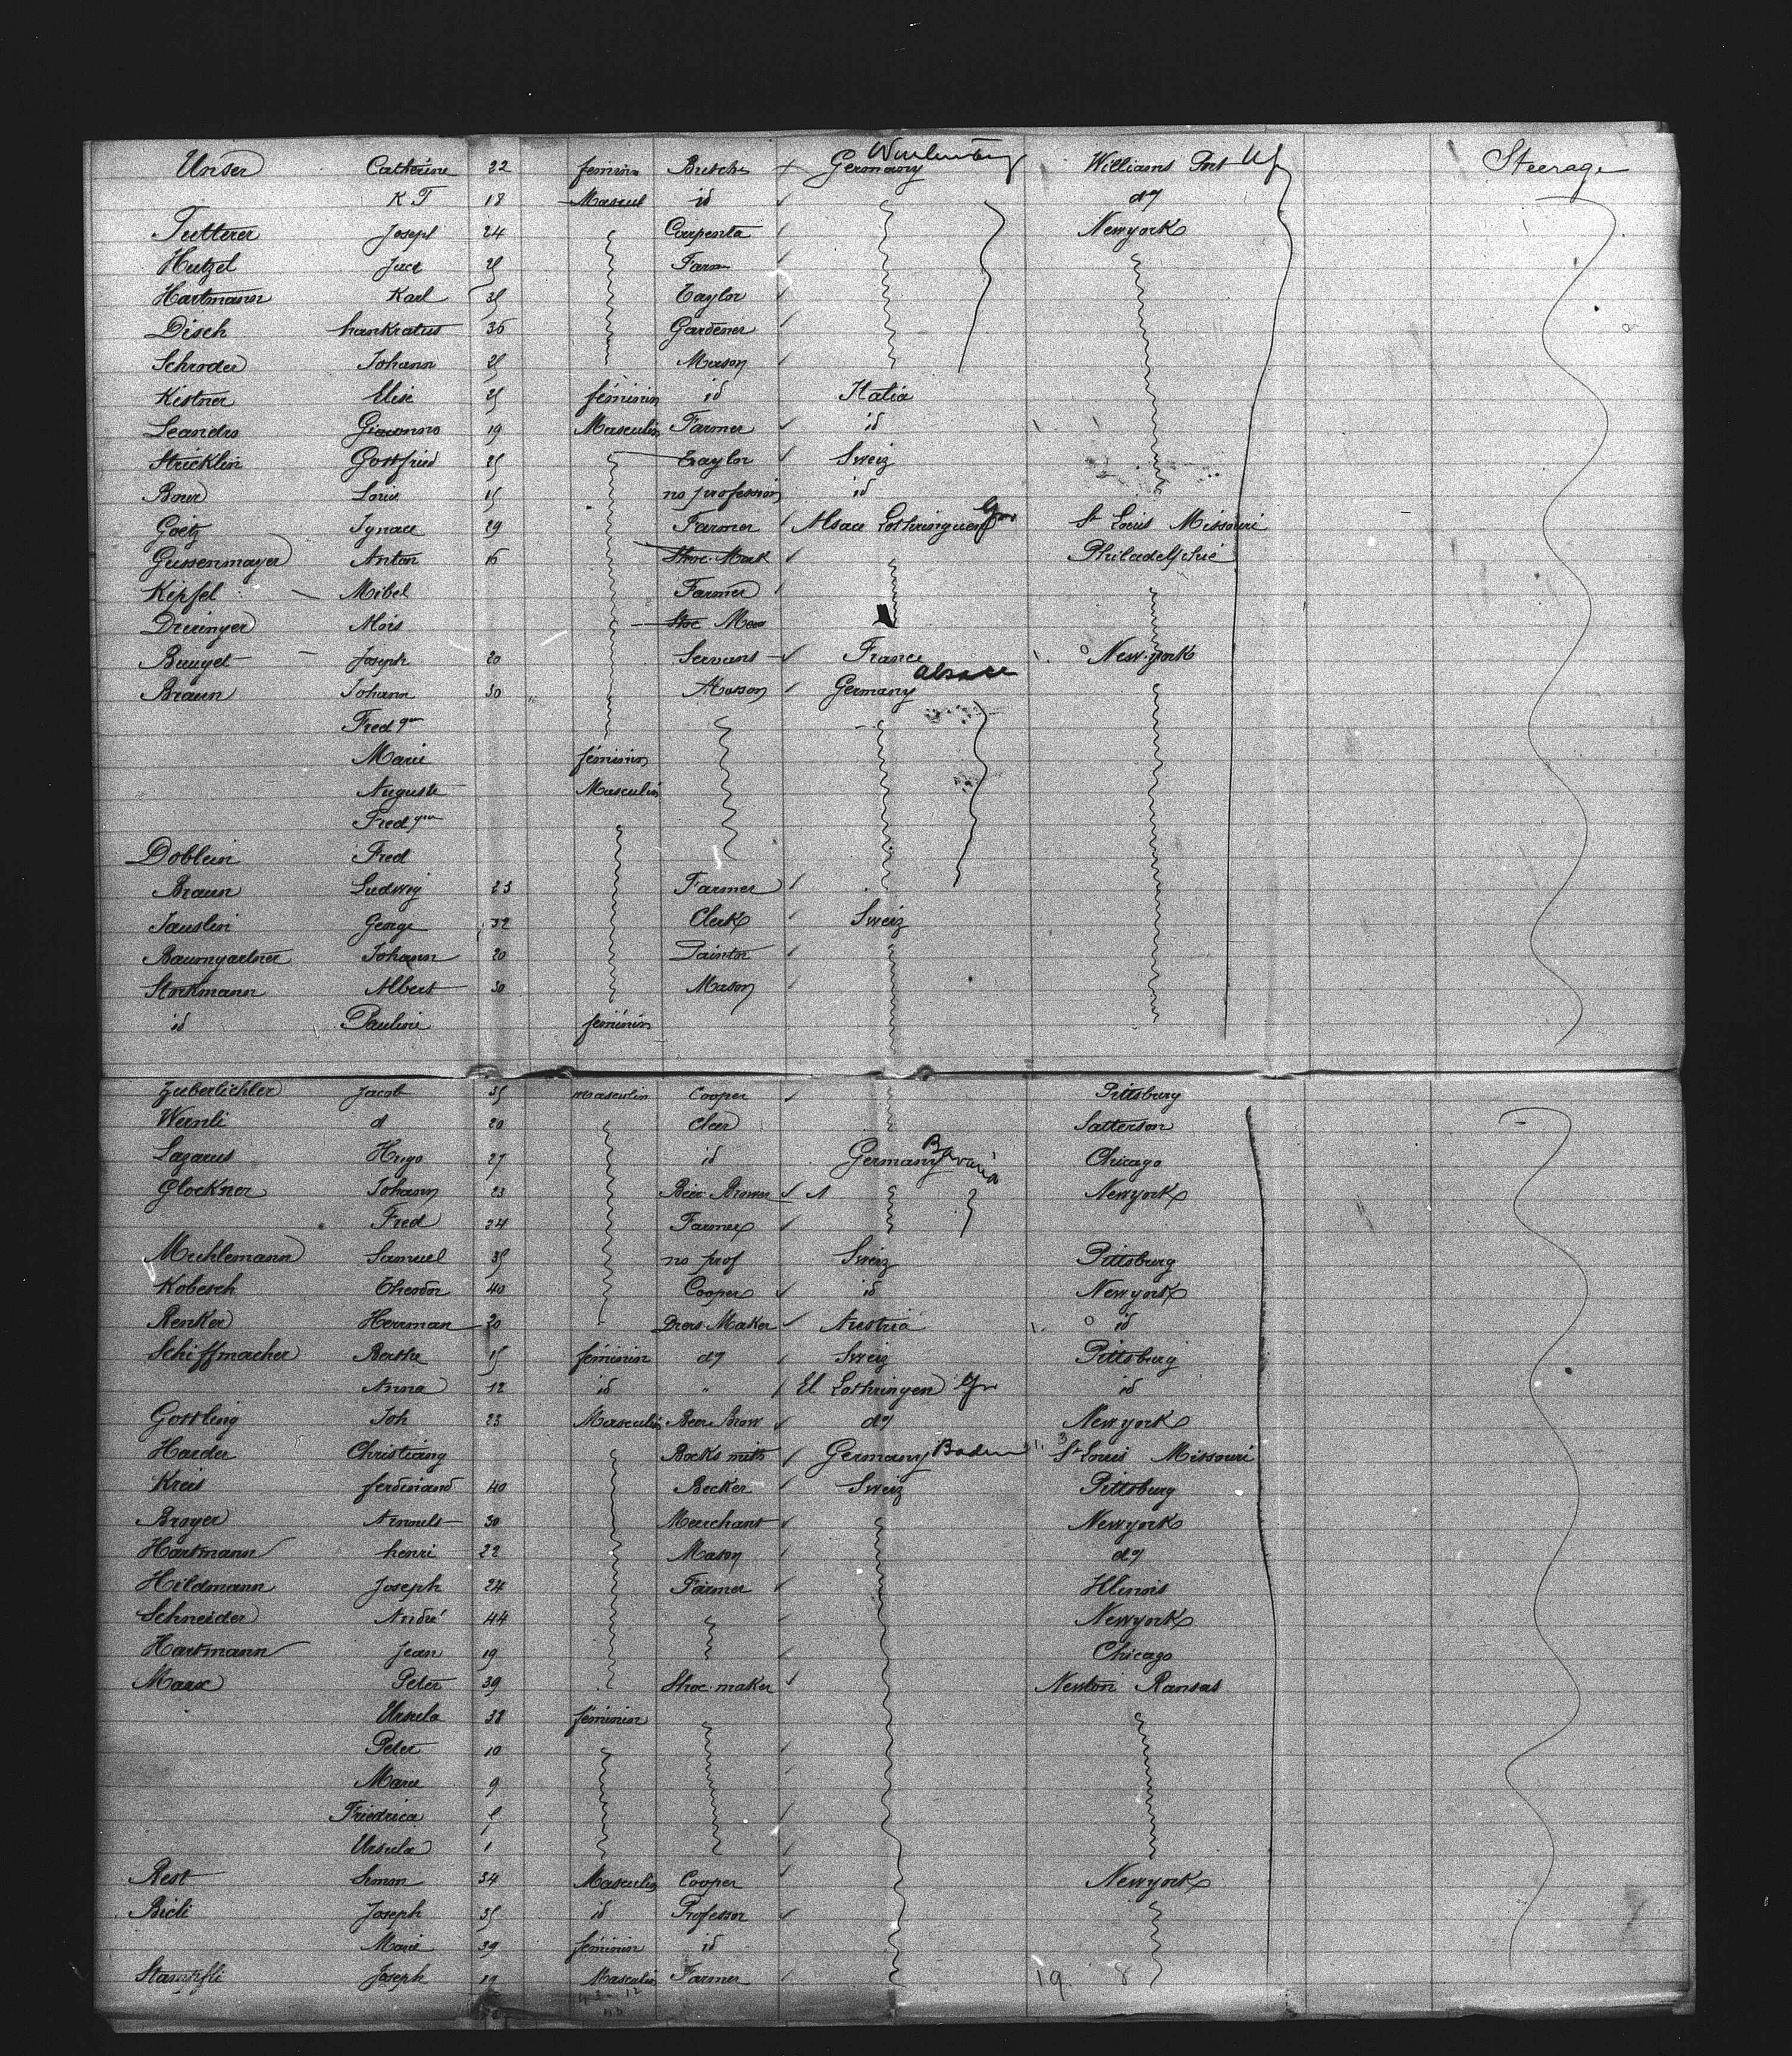 Unser Catherine 22 feminin Butcher Germany Wurtemberg Williams Port Steerage
K T 18 Mascul id d°
Tutterer Joseph 24 Carpenta Newyork
Hutzel Jact 25 Farm
Hartmann Karl 35 Taylor
Disch hankratus 36 Gardener
Schroder Johann 25 Mason
Kistner Elise 25 féminin id Italia
Leandro Giacomno 19 Masculin Farmer id
Stricklin Gottfried 25 Taylor Sweiz
Bour Louis 15 no profession id
Goetz Ignace 29 Farmer Alsace Lothringuen St Louis Missouri
Gussenmayer Anton 16 Shoe. Mak Philadelphie
Kipfel Mibel Farmer
Dreringer Alois Shoe Mas
Buuget Joseph 20 Servant France New-york
Braun Johann 30 Mason Germany alsace
Fred
Marie féminin
Auguste Masculin
Fred
Doblein Fred
Braun Ludwig 23 Farmer
Tauslin George 32 Clerk Sweiz
Baumgartner Johann 20 Paintor
Storkmann Albert 30 Mason
id Pauline feminin
Zuberlichler Jacob 35 masculin Cooper Pittsburg
Wernli d 20 Cleer Satterson
Lazarus Hugo 27 id Germany Bavaria Chicago
Glockner Johann 23 Bier Brower Newyork
Fred 24 Farmer
Muhlemann Samuel 35 no prof Sweiz Pittsburg
Kobesch Theodor 40 Cooper id Newyork
Renker Herrman 20 Dres. Maker Austria id
Schiffmacher Bertha 15 féminin d° Sweiz Pittsburg
Anna 12 id " El Lothringen id
Gottling Joh 23 Masculin Beer Brow d° Newyork
Harder Christiang Bocksmith Germany Baden St Louis Missouri
Kreis ferdinand 40 Becker Sweiz Pittsburg
Broyer Arnoult 30 Merchant Newyork
Hartmann henri 22 Mason d°
Hildmann Joseph 24 Farmer Illinois
Schneider André 44 Newyork
Hartmann Jean 19 Chicago
Marx Peter 39 Shoe-maker Newton Kansas
Ursula 38 féminin
Peter 10
Marie 9
Friedrica
Ursula 1
Rest Simon 34 Masculin Cooper Newyork
Bieli Joseph 35 id Professor
Marie 39 feminin id
Stampfli Joseph 19 Masculin Farmer 19 8